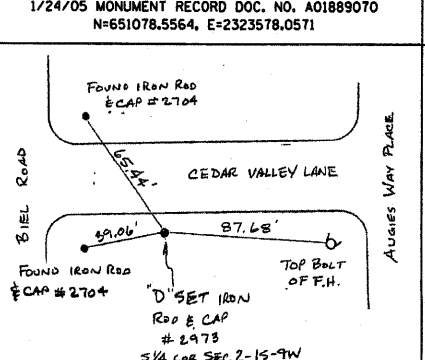 1/24/05 MONUMENT RECORD DOC. NO. A01889070
N=651078.5564, E=2323578.0571
FOUND IRON ROD
& CAP # 2704
65.44'
CEDAR VALLEY LANE
BIEL ROAD
AUGIES WAY PLACE
39.06'
87.68'
FOUND IRON ROD
& CAP # 2704
TOP BOLT
OF F.H.
"D" SET IRON
ROD & CAP
# 2973
S1/4 COR SEC 2-1S-9W